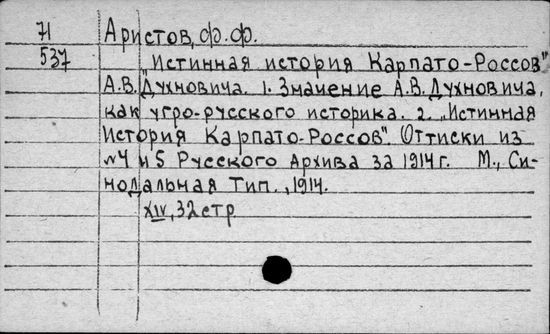 Я Аристов, Ф.Ф.
537 „Истинная история Карпато-Россов"
А.В. Духновича. 1. Значение А.В. Духновича,
как угро-русского историка. 2. „Истинная
История Карпато-Россов". Оттиски из
№4 и 5 Русского Архива за 1914 г. М., Си-
нодальная Тип., 1914.
XIV, 32 стр